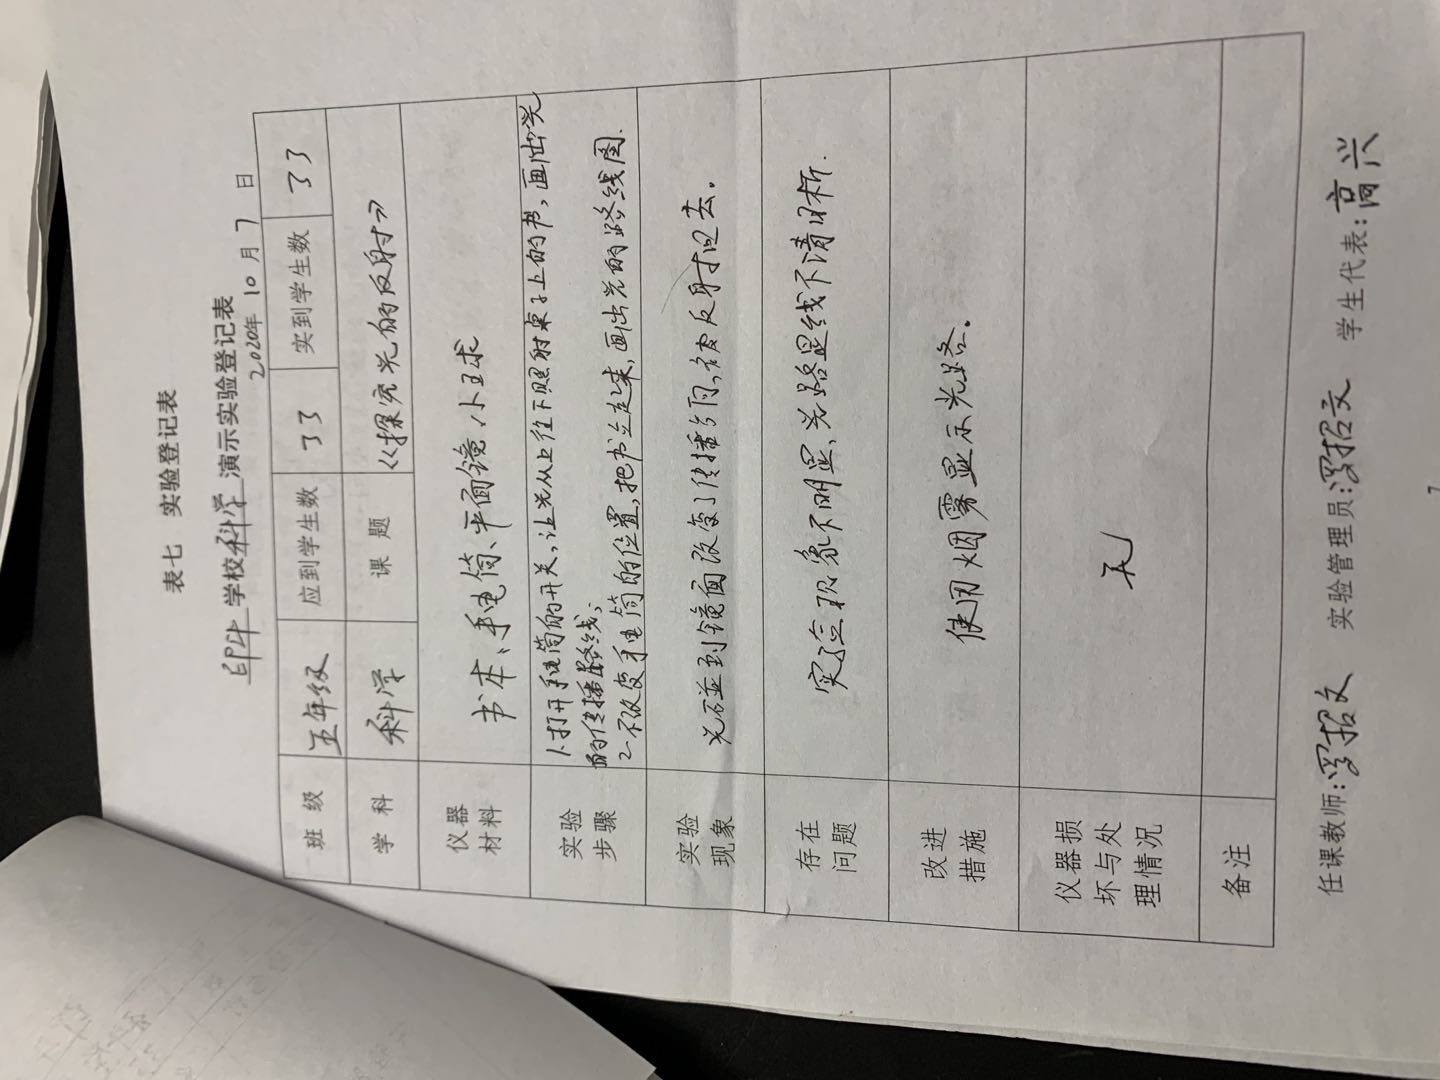 表七 实验登记表
学校科学 演示实验登记表
2020年 10 月 7 日
班 级 五年级 应到学生数 33 实到学生数 33
学 科 科学 课 题 《探究光的反射》
仪器
材料
书本、手电筒、平面镜、小球
实验
步骤
1、打开手电筒的开关,让光从上往下照射桌子上的书,画出光
的传播路线;
2-不改变手电筒的位置,把书立起来,画出光的路线图.
实验
现象
光碰到镜面改变了传播方向,被反射回去。
存在
问题
实验现象不明显、光路显线不清晰.
改进
措施
使用烟雾显示光路。
仪器损
坏与处
理情况
无
备注
任课教师: 实验管理员: 学生代表:高兴